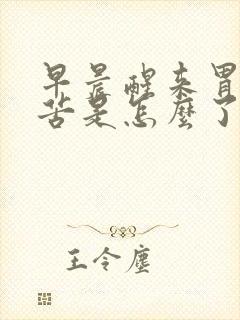 早晨醒来胃
苦是怎麼了
王令塵